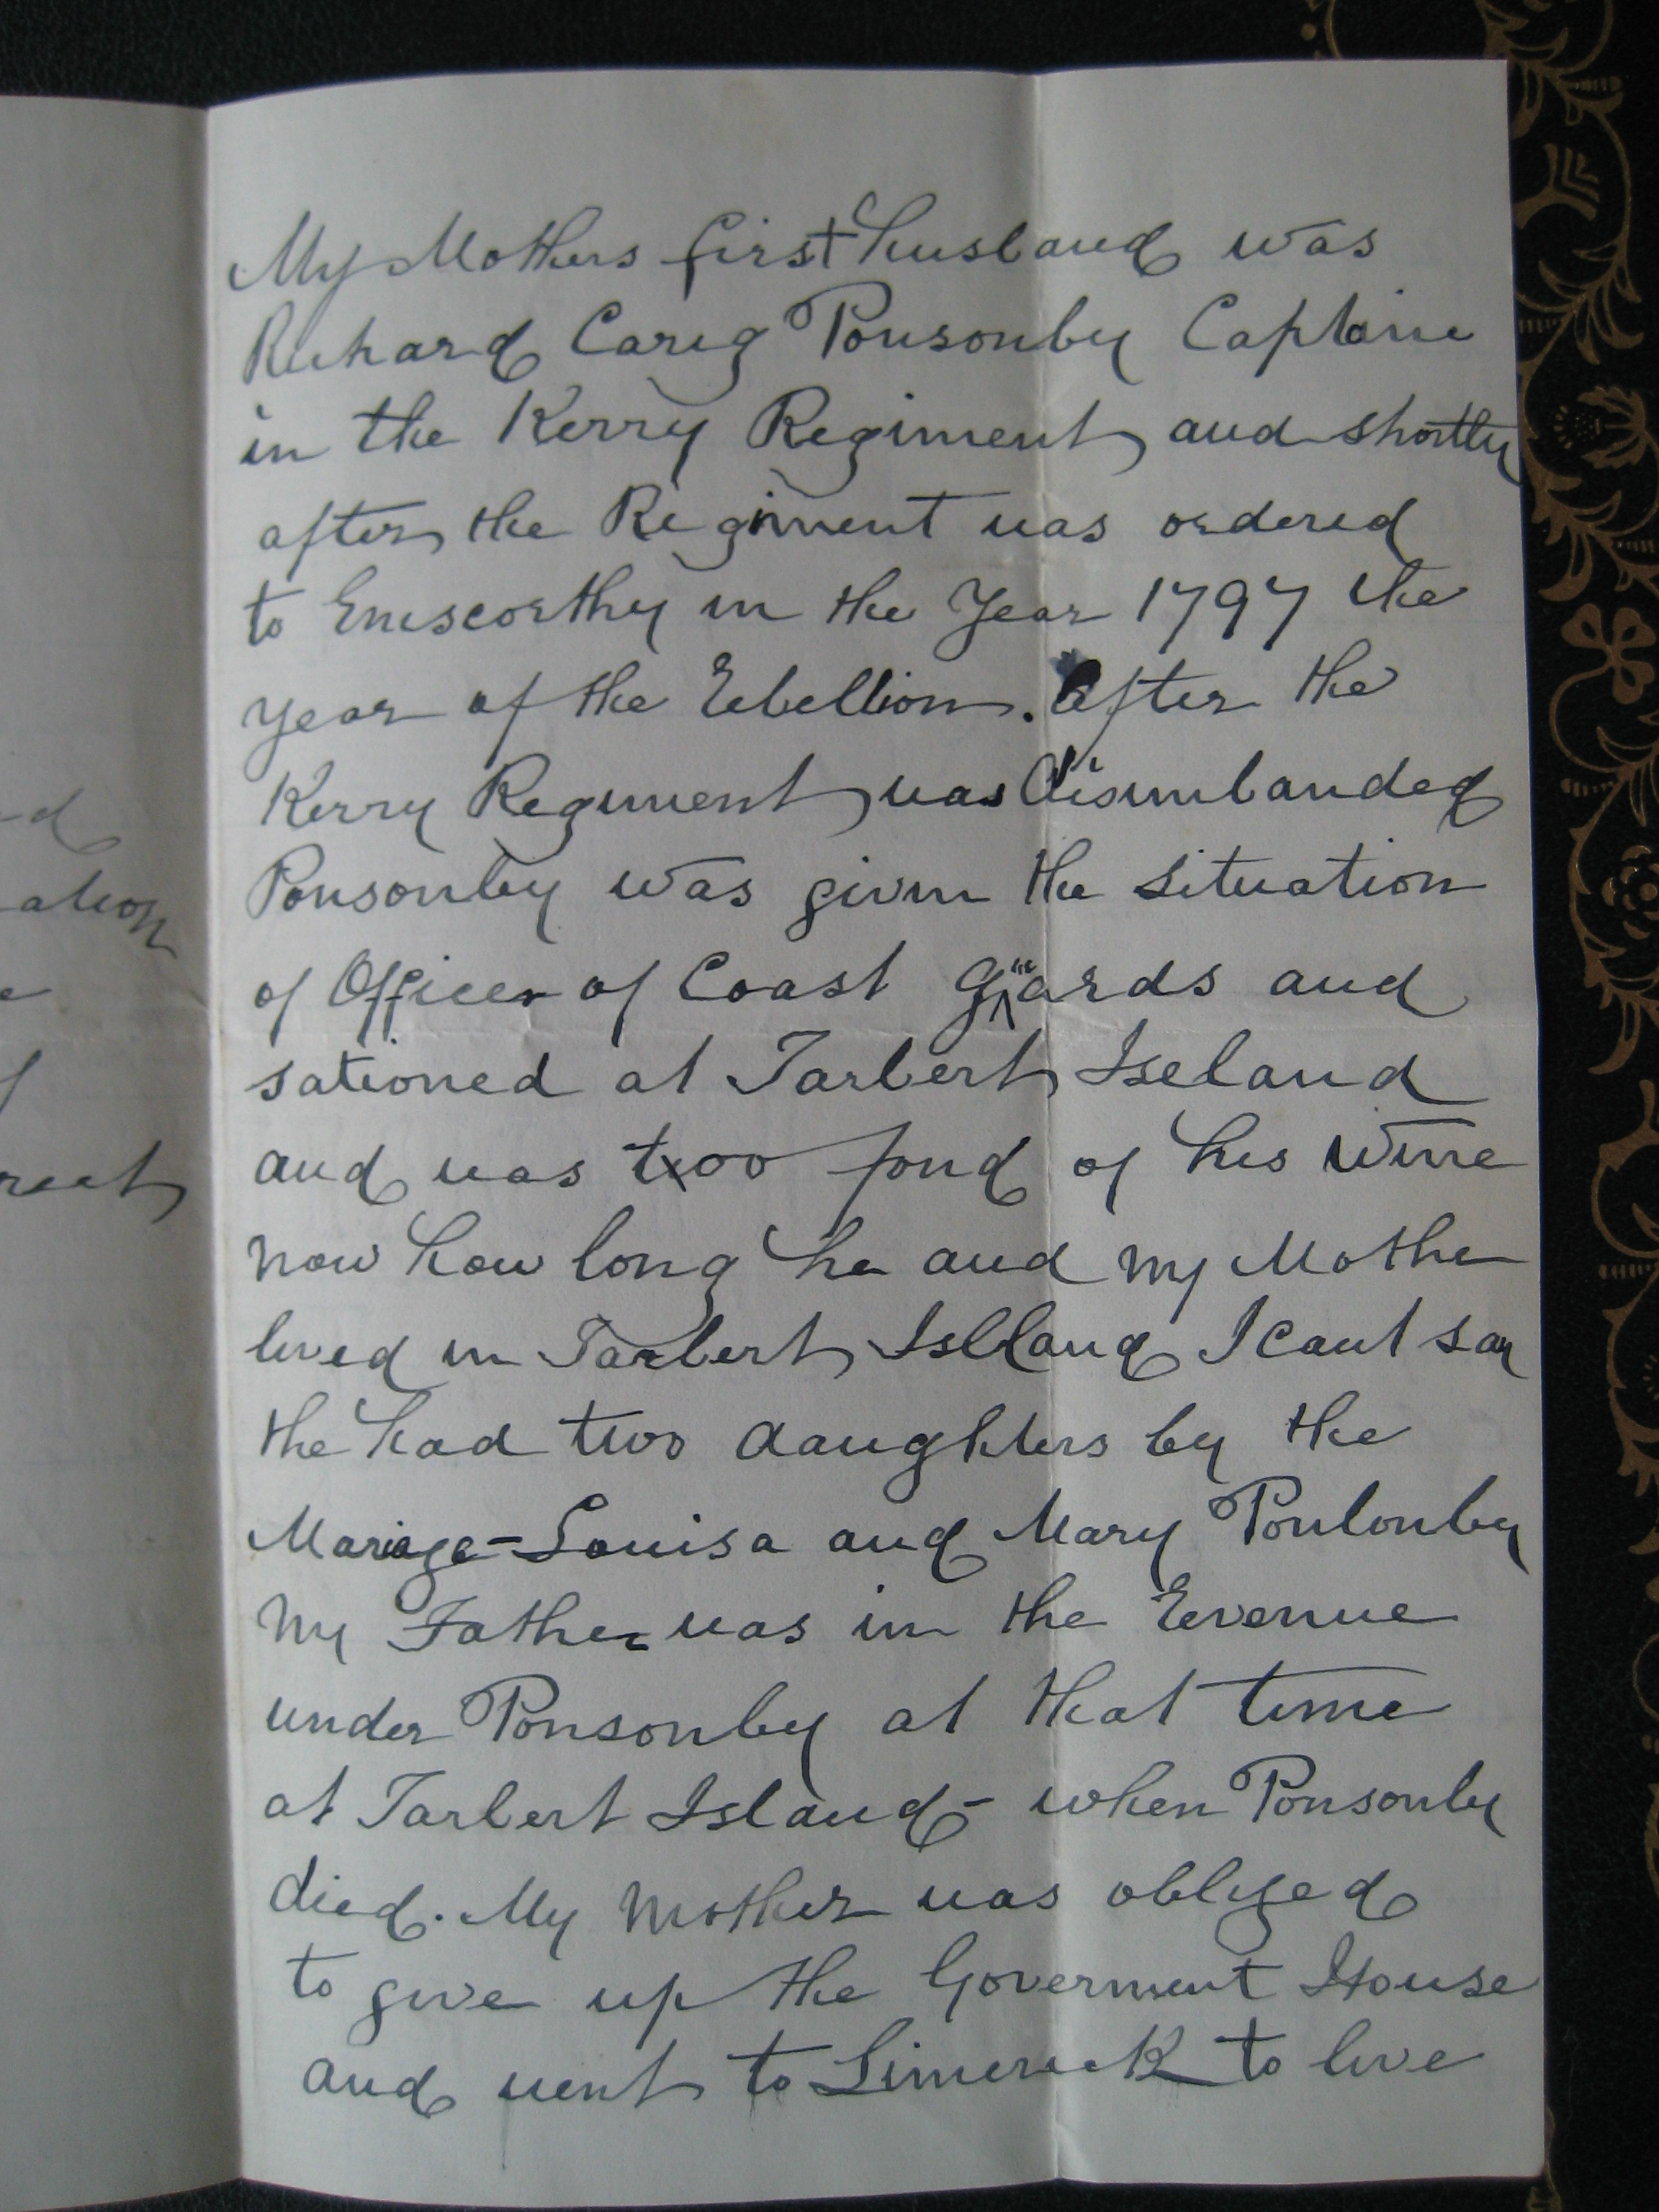 My Mothers first husband was
Richard Careg Ponsonby Captaine
in the Kerry Regiment and shortly
after the Regiment was ordered
to Eniscorthy in the Year 1797 the
year of the Rebellion. After the
Kerry Regiment was disimbanded
Ponsonby was given the situation
of Officer of Coast Guards and
sationed at Tarbert Iseland
and was too fond of his wine
now how long he and my Mother
lived in Tarbert Islland I cant say
the had two daughters by the
Mariage - Louisa and Mary Ponlonby
My Father was in the Revenue
under Ponsonby at that time
at Tarbert Island - when Ponsonby
died. My Mother was oblized
to give up the Goverment House
and went to Limerick to live